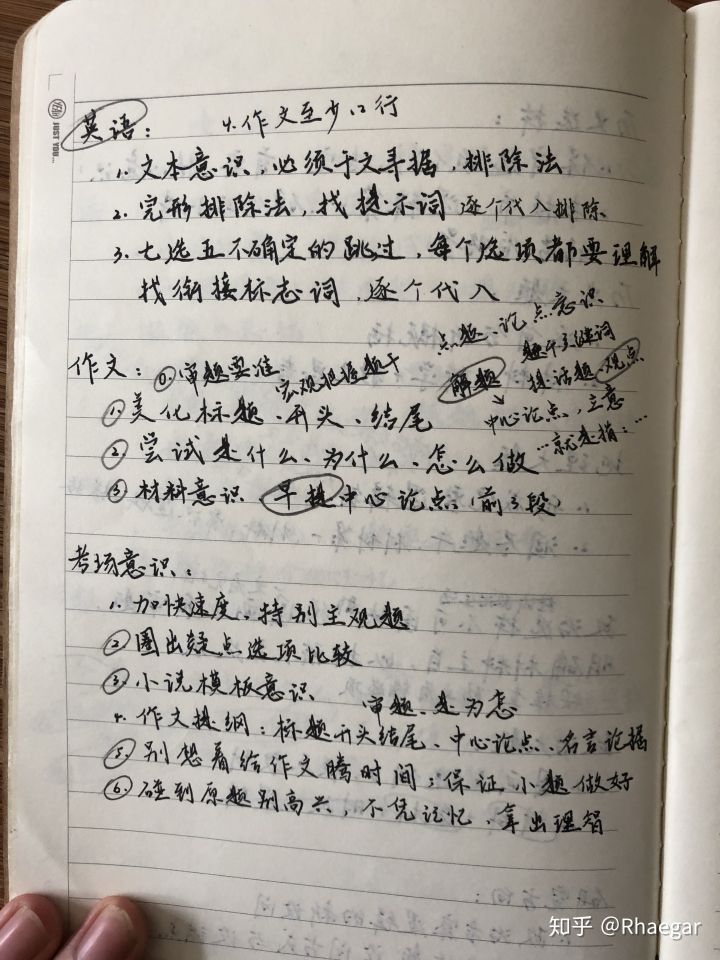 英语： 4.作文至少12行
1.文本意识，必须于文寻据，排除法
2.完形排除法，找提示词 逐个代入排除
3.七选五不确定的跳过，每个选项都要理解
找衔接标志词，逐个代入
点题、论点意识
作文：⓪审题要准 宏观把握题干 解题 题干关键词
提话题、观点
①美化标题、开头、结尾 中心论点，主意
②尝试是什么、为什么、怎么做 …就是指：…
③材料意识 早提中心论点（前3段）
考场意识：
1.加快速度，特别主观题
②圈出疑点选项比较
③小说模板意识 审题、是为怎
4.作文提纲：标题开头结尾、中心论点、名言论据
⑤别想着给作文腾时间；保证小题做好
⑥碰到原题别高兴，不凭记忆，拿出理智
JUST YOU...
知乎 @Rhaegar